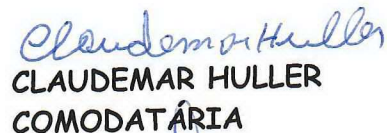 Claudemar Huller
CLAUDEMAR HULLER
COMODATÁRIA